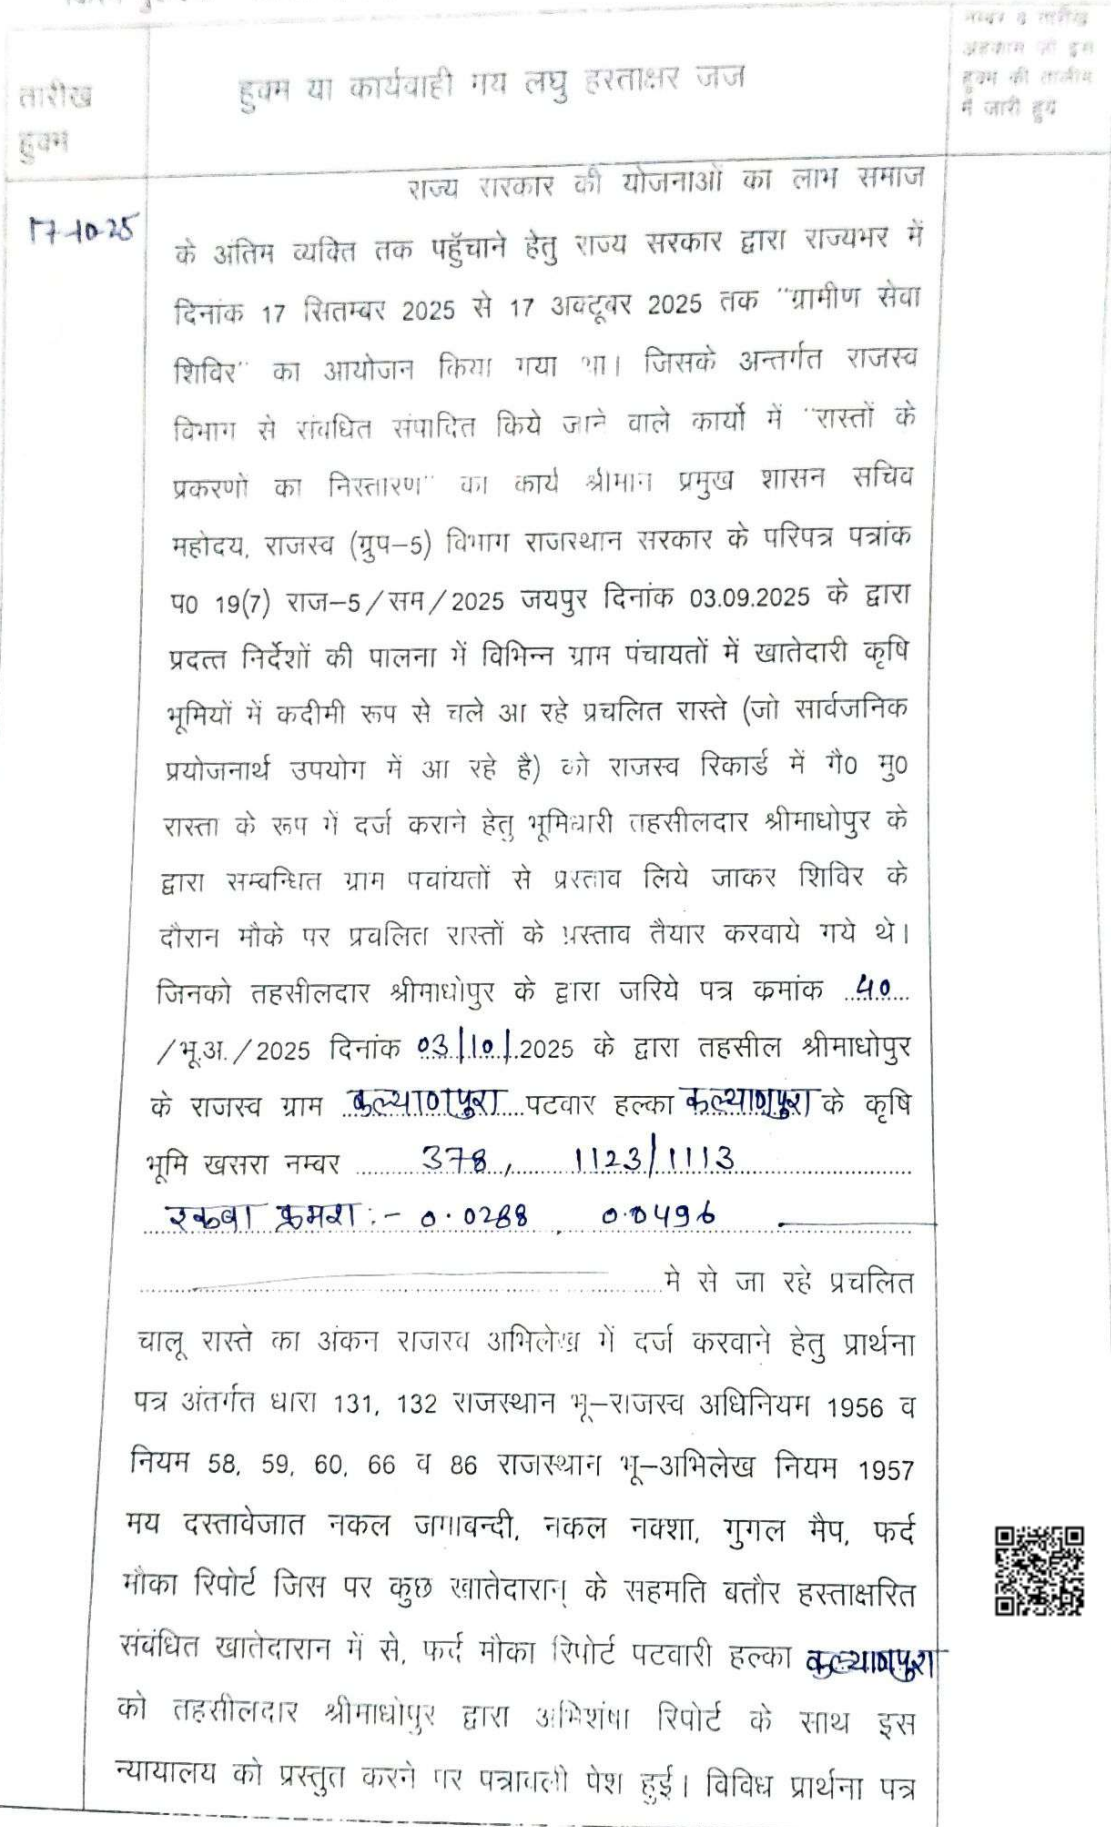 तारीख
हुक्म
हुक्म या कार्यवाही मय लघु हस्ताक्षर जज
नम्बर व तारीख
अहकाम जो इस
हुक्म की तामील
में जारी हुये
17-10-25
राज्य सरकार की योजनाओं का लाभ समाज
के अंतिम व्यक्ति तक पहुँचाने हेतु राज्य सरकार द्वारा राज्यभर में
दिनांक 17 सितम्बर 2025 से 17 अक्टूबर 2025 तक "ग्रामीण सेवा
शिविर" का आयोजन किया गया था। जिसके अन्तर्गत राजस्व
विभाग से संबधित संपादित किये जाने वाले कार्यो में "रास्तों के
प्रकरणो का निस्तारण" का कार्य श्रीमान प्रमुख शासन सचिव
महोदय, राजस्व (ग्रुप–5) विभाग राजस्थान सरकार के परिपत्र पत्रांक
प0 19(7) राज–5/सम/2025 जयपुर दिनांक 03.09.2025 के द्वारा
प्रदत्त निर्देशों की पालना में विभिन्न ग्राम पंचायतों में खातेदारी कृषि
भूमियों में कदीमी रूप से चले आ रहे प्रचलित रास्ते (जो सार्वजनिक
प्रयोजनार्थ उपयोग में आ रहे है) को राजस्व रिकार्ड में गै0 मु0
रास्ता के रूप में दर्ज कराने हेतु भूमिधारी तहसीलदार श्रीमाधोपुर के
द्वारा सम्बन्धित ग्राम पचांयतों से प्रस्ताव लिये जाकर शिविर के
दौरान मौके पर प्रचलित रास्तों के प्रस्ताव तैयार करवाये गये थे।
जिनको तहसीलदार श्रीमाधोपुर के द्वारा जरिये पत्र क्रमांक 40
/भू.अ./2025 दिनांक 03/10/.2025 के द्वारा तहसील श्रीमाधोपुर
के राजस्व ग्राम कल्याणपुरा पटवार हल्का कल्याणपुरा के कृषि
भूमि खसरा नम्बर 378, 1123/1113
रकबा क्रमश:- 0.0288, 0.0496
मे से जा रहे प्रचलित
चालू रास्ते का अंकन राजस्व अभिलेख में दर्ज करवाने हेतु प्रार्थना
पत्र अंतर्गत धारा 131, 132 राजस्थान भू–राजस्व अधिनियम 1956 व
नियम 58, 59, 60, 66 व 86 राजस्थान भू–अभिलेख नियम 1957
मय दस्तावेजात नकल जमाबन्दी, नकल नक्शा, गुगल मैप, फर्द
मौका रिपोर्ट जिस पर कुछ खातेदारान् के सहमति बतौर हस्ताक्षरित
संबंधित खातेदारान में से, फर्द मौका रिपोर्ट पटवारी हल्का कल्याणपुरा
को तहसीलदार श्रीमाधोपुर द्वारा अभिशंषा रिपोर्ट के साथ इस
न्यायालय को प्रस्तुत करने पर पत्रावली पेश हुई। विविध प्रार्थना पत्र